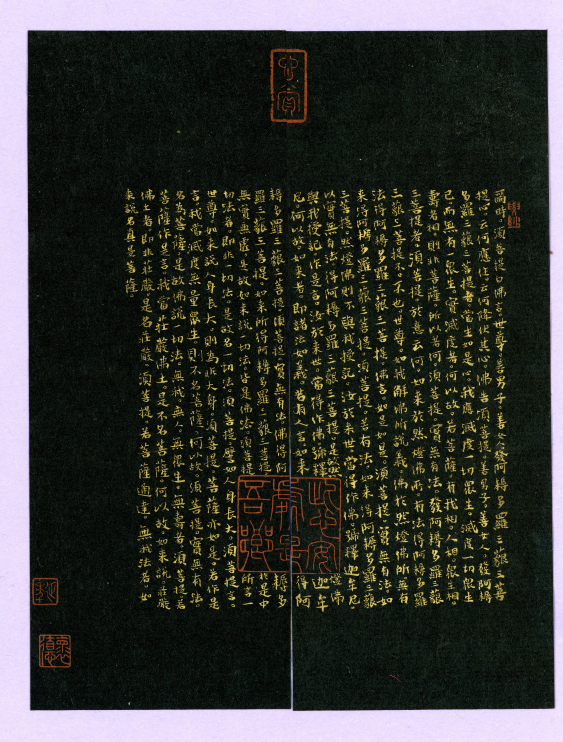 爾時。須菩提白佛言。世尊。善男子。善女人。發阿耨多羅三藐三菩
提心。云何應住。云何降伏其心。佛告須菩提。善男子。善女人。發阿耨
多羅三藐三菩提者。當生如是心。我應滅度一切眾生。滅度一切眾生
已。而無有一眾生實滅度者。何以故。若菩薩有我相。人相。眾生相。
壽者相。則非菩薩。所以者何。須菩提。實無有法。發阿耨多羅三藐
三菩提者。須菩提。於意云何。如來於然燈佛所。有法得阿耨多羅
三藐三菩提不。不也。世尊。如我解佛所說義。佛於然燈佛所。無有
法得阿耨多羅三藐三菩提。佛言。如是如是。須菩提。實無有法。如
來得阿耨多羅三藐三菩提。須菩提。若有法如來得阿耨多羅三藐
三菩提。然燈佛則不與我授記。汝於來世。當得作佛。號釋迦牟尼
以實無有法得阿耨多羅三藐三菩提。是故然燈佛
與我授記。作是言。汝於來世。當得作佛。號釋迦牟
尼。何以故。如來者。即諸法如義。若有人言如來得阿
耨多羅三藐三菩提。須菩提。實無有法。佛得阿耨多
羅三藐三菩提。須菩提。如來所得阿耨多羅三藐三菩提。於是中
無實無虛。是故如來說一切法。皆是佛法。須菩提。所言一
切法者。即非一切法。是故名一切法。須菩提。譬如人身長大。須菩提言。
世尊。如來說人身長大。則為非大身。是名大身。須菩提。菩薩亦如是。若作是
言。我當滅度無量眾生。則不名菩薩。何以故。須菩提。實無有法
名為菩薩。是故佛說一切法。無我。無人。無眾生。無壽者。須菩提。若
菩薩作是言。我當莊嚴佛土。是不名菩薩。何以故。如來說。莊嚴
佛土者。即非莊嚴。是名莊嚴。須菩提。若菩薩通達無我法者。如
來說名真是菩薩。